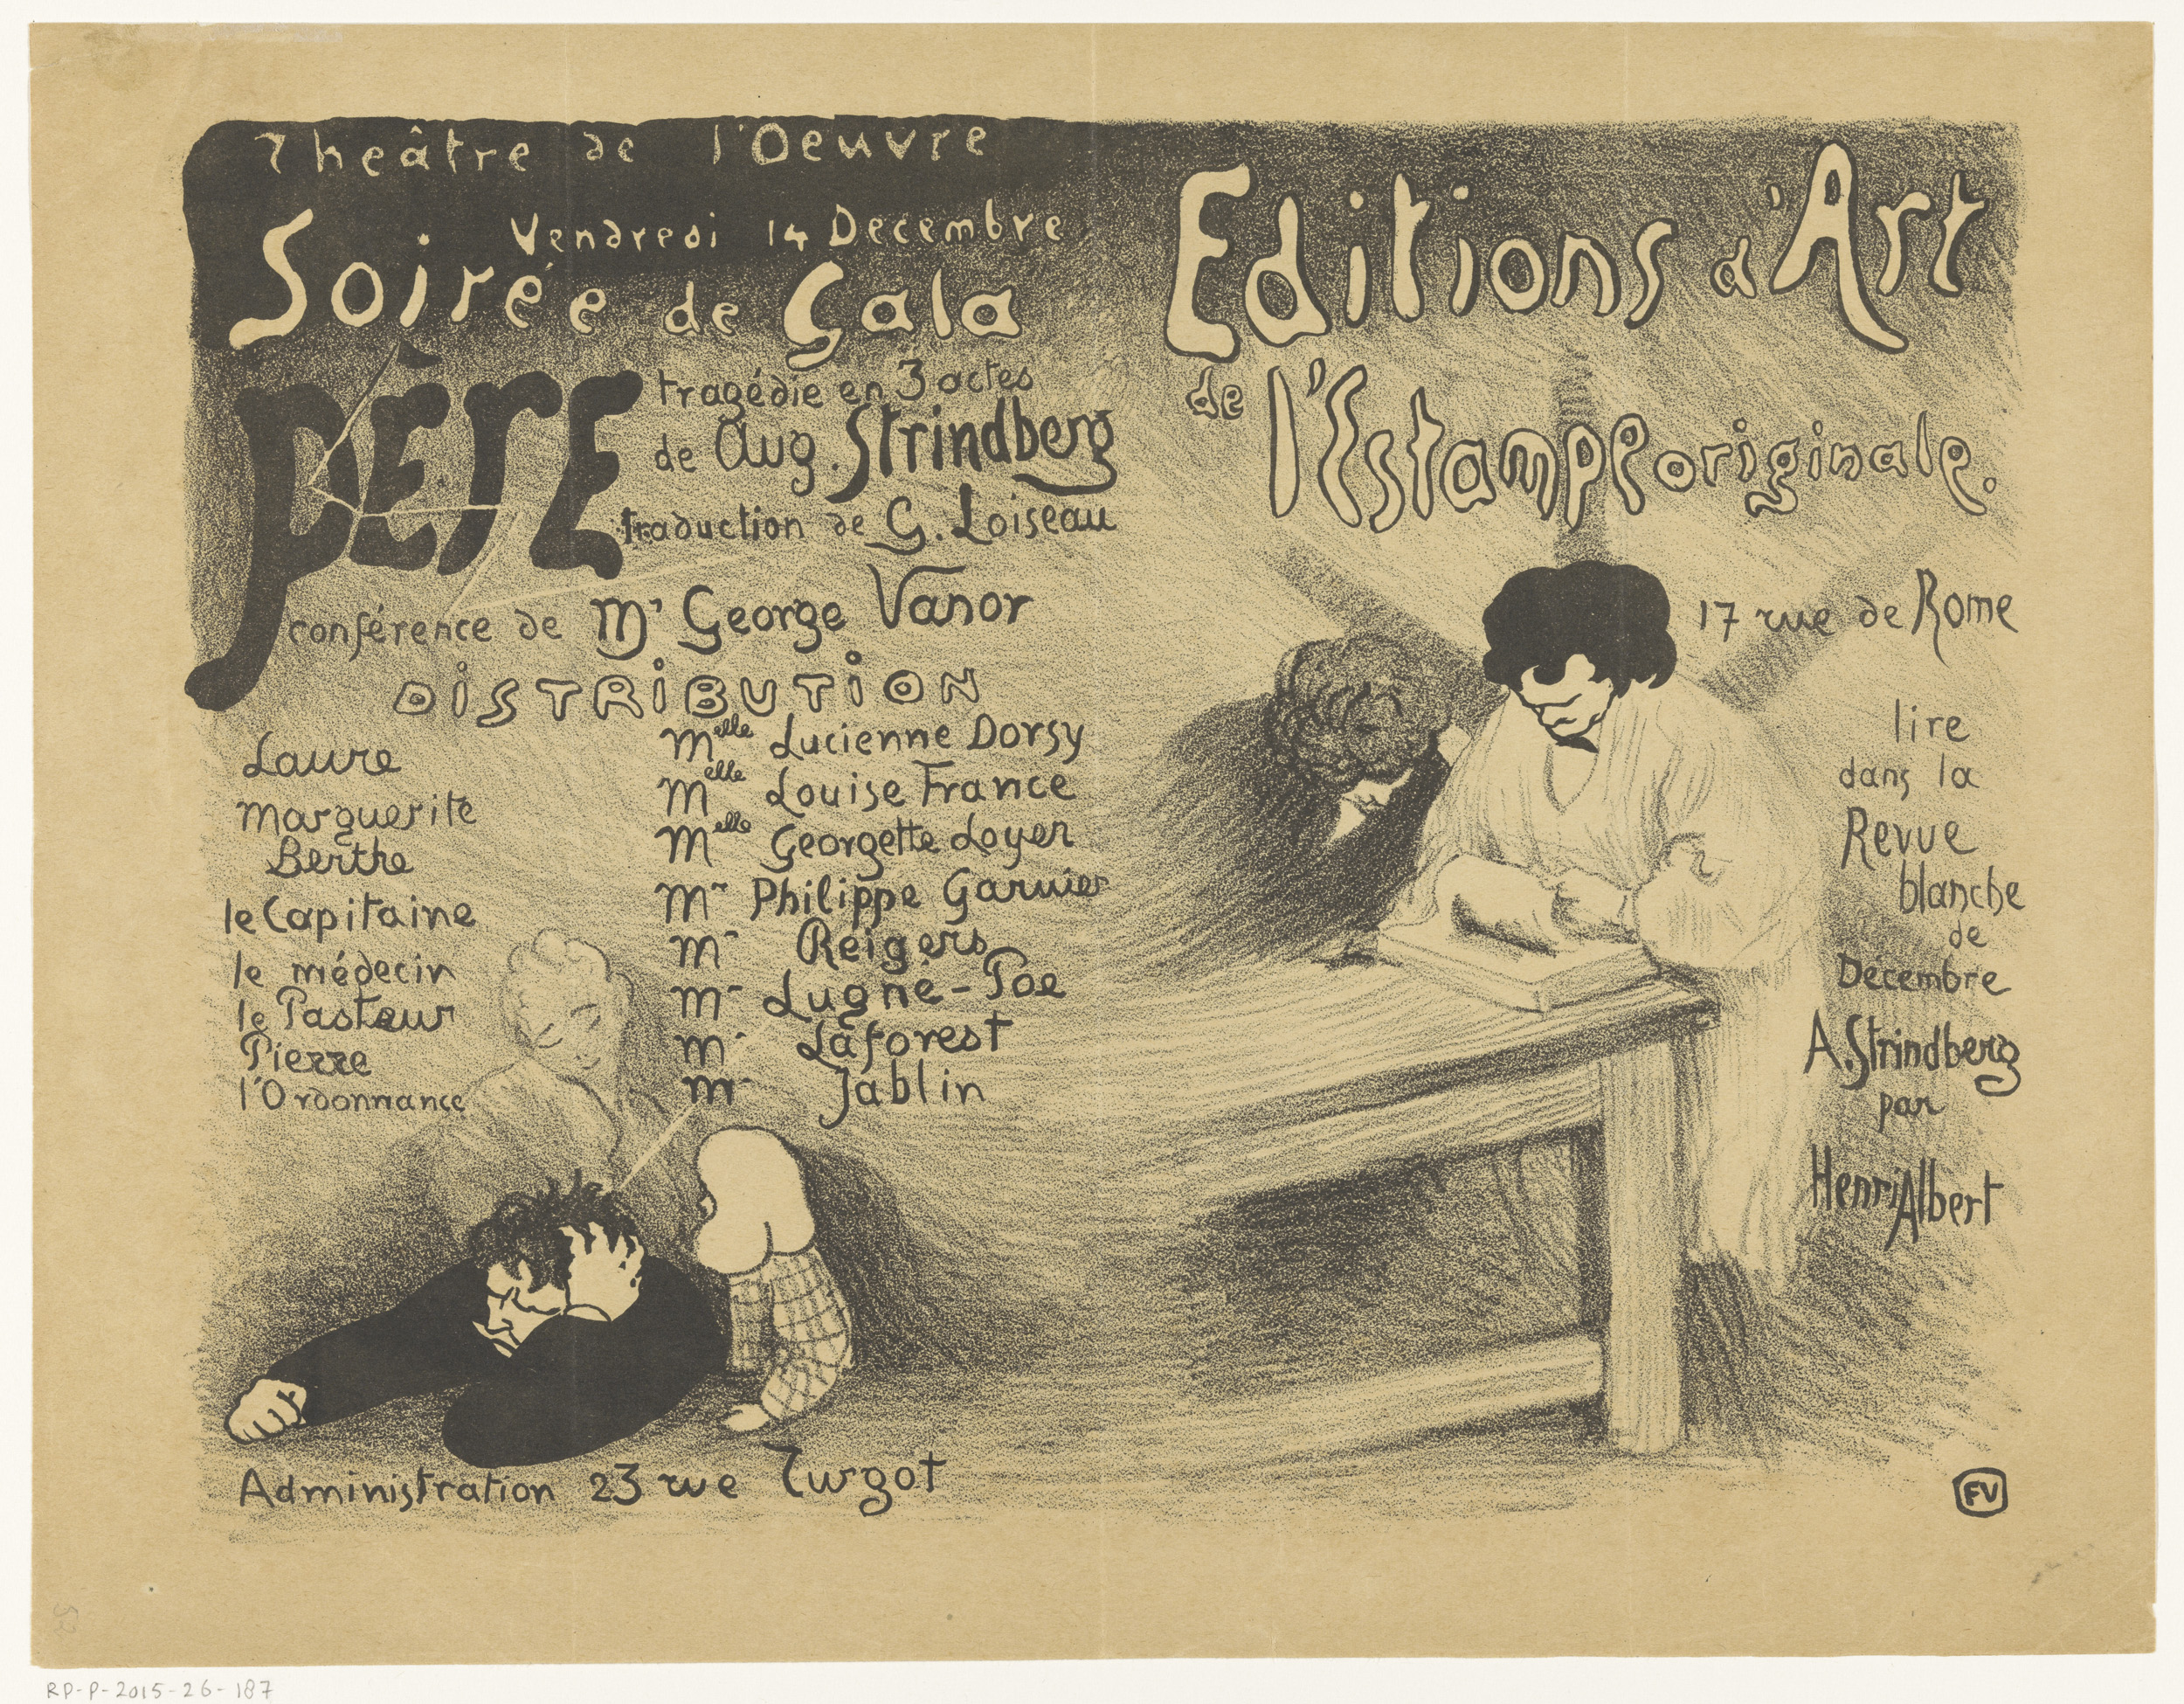 Theâtre de l'Oeuvre
Vendredi 14 Decembre
Soirée de Gala
Père
tragédie en 3 actes
de Aug. Strindberg
traduction de G. Loiseau
conférence de Mr George Vanor
DISTRIBUTION
Laure Melle Lucienne Dorsy
Marguerite Melle Louise France
Berthe Melle Georgette Loyer
le Capitaine Mr Philippe Garnier
le médecin Mr Reigers
le Pasteur Mr Lugné-Poe
Pierre Mr Laforest
l'Ordonnance Mr Jablin
Administration 23 rue Turgot
Editions d'Art
de l'Estampe originale.
17 rue de Rome
lire
dans la
Revue
blanche
de
Décembre
A. Strindberg
par
Henri Albert
FV
RP-P-2015-26-187